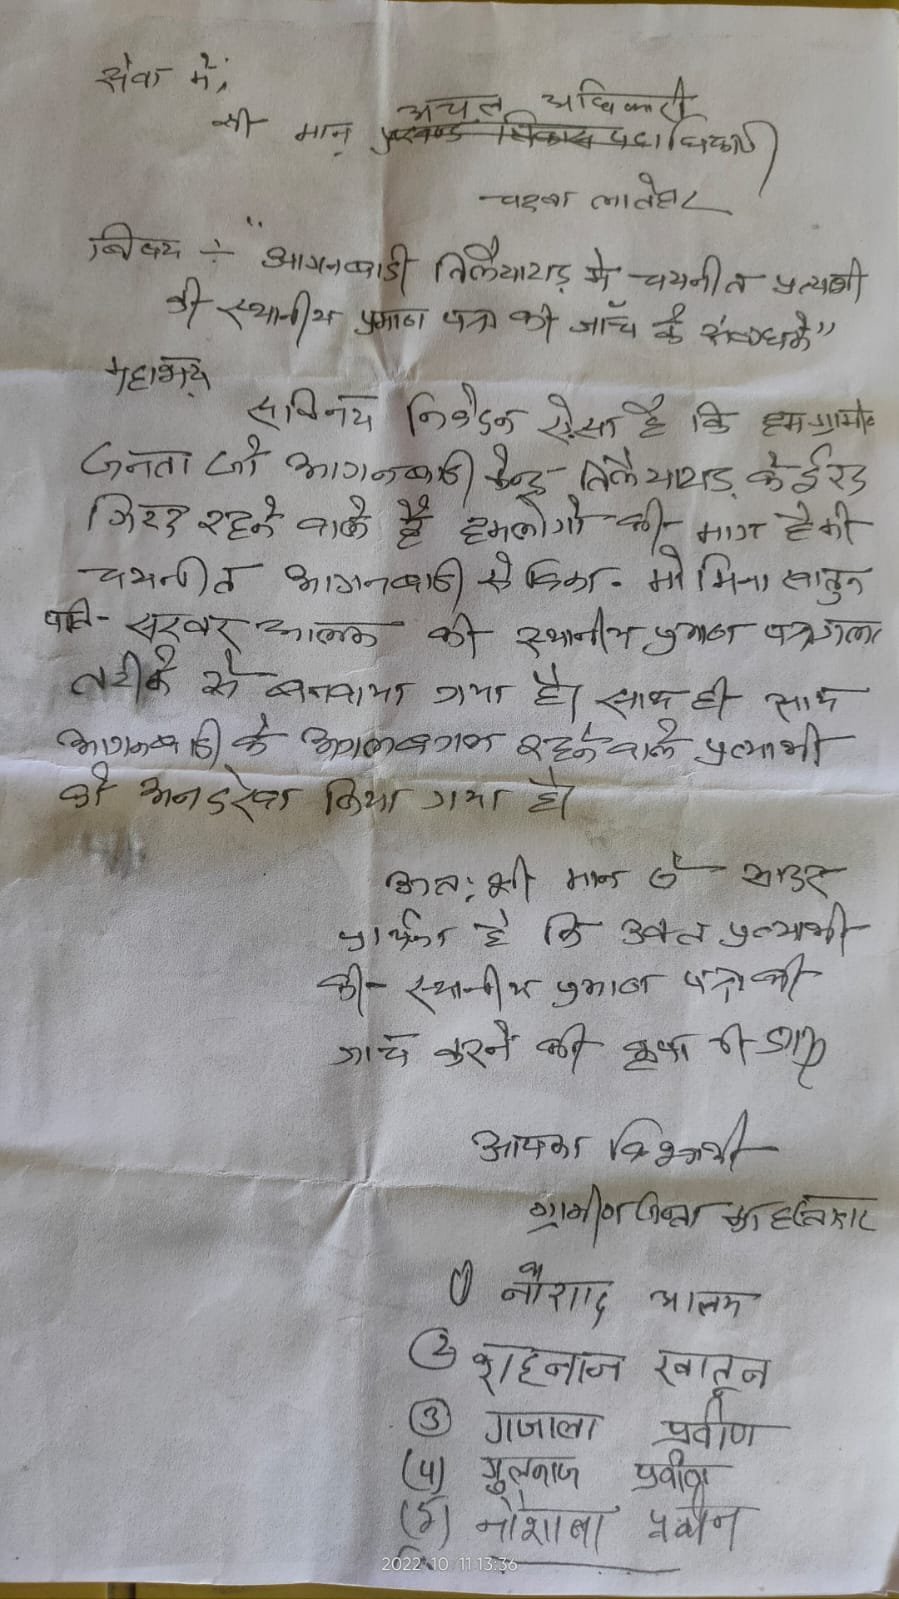 सेवा में,
अंचल अधिकारी
श्री मान् प्रखण्ड विकास पदाधिकारी
चन्दवा लातेहार
विषय ÷ "आगनबाडी तिलैयाटाड़ में चयनीत प्रत्याशी
की स्थानीय प्रमाण पत्र की जाँच के संबंधमे"
महाशय
सविनय निवेदन ऐसा है कि हमग्रामीण
जनता जो आगनबाडी केन्द्र तिलैयाटाड़ के ईरद
गिरद रहने वाले हैं हमलोगो की माग है की
चयनीत आगनबाडी सेविका मो मिना खातुन
पति- सरवर आलम की स्थानीय प्रमाण पत्र गलत
तरीके से बनवाया गया है। साथ ही साथ
आगनबाडी के अगलबगल रहनेवाले प्रत्याशी
को अनदेखा किया गया है।
अत: श्री मान से सादर
प्रार्थना है कि उक्त प्रत्याशी
की स्थानीय प्रमाण पत्र की
जाच करने की कृपा की जाए
आपका विश्वासी
ग्रामीण जनता का हस्ताक्षर
① नौशाद आलम
② शहनाज खातून
③ गजाला प्रवीण
(4) गुलनाज प्रवीण
(5) नौशाबा प्रवीन
2022-10-11 13:36